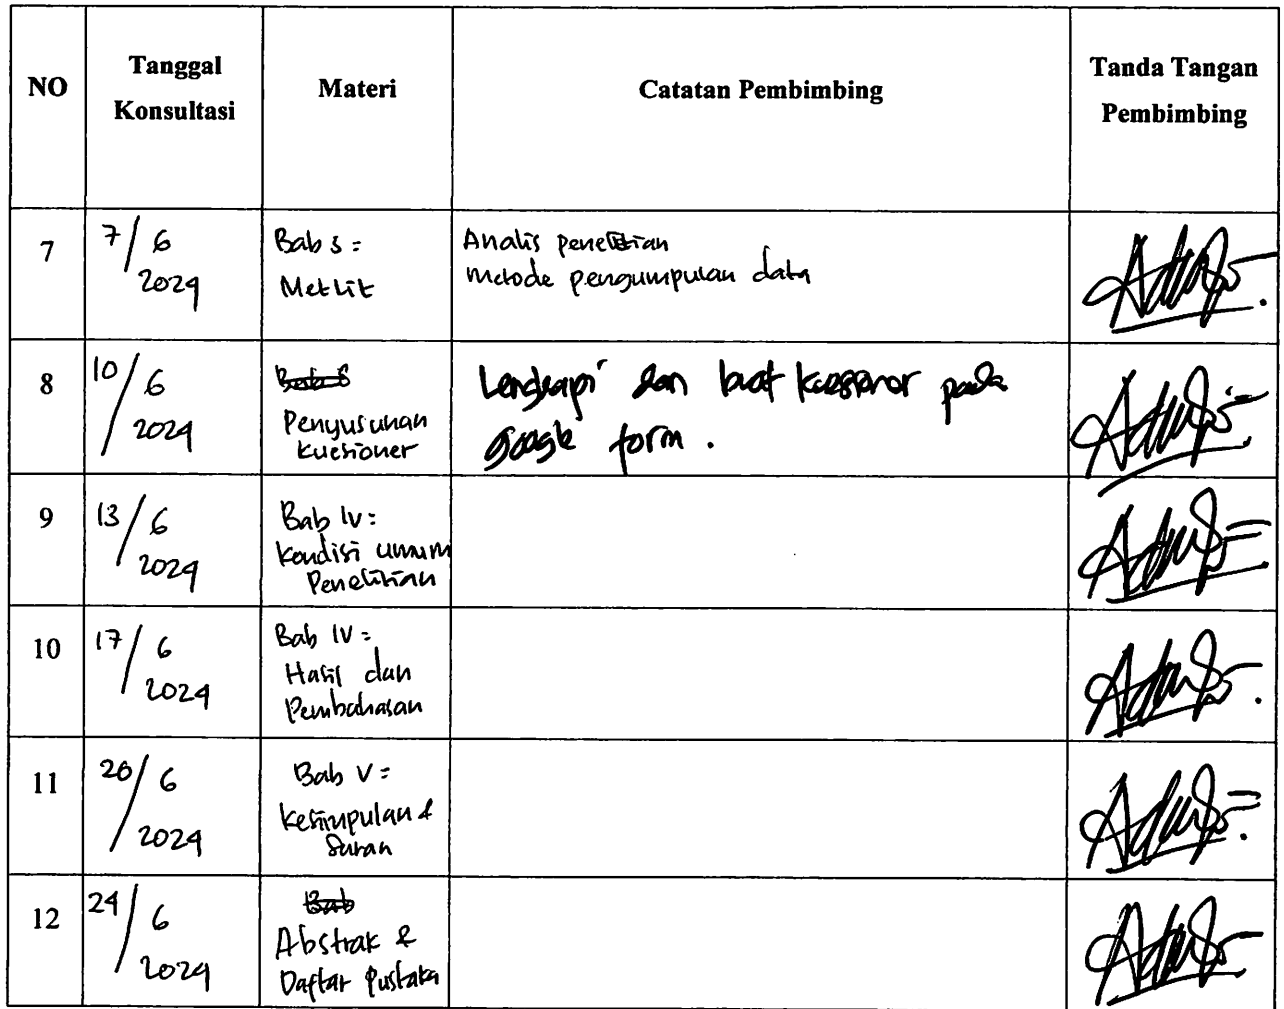 NO
Tanggal
Konsultasi
Materi
Catatan Pembimbing
Tanda Tangan
Pembimbing
7
7/6
2024
Bab 3 :
Metlit
Analis penelitian
Metode pengumpulan data
8
10/6
2024
Penyusunan
kuesioner
Lengkapi dan buat kuesioner pada
google form .
9
13/6
2024
Bab IV :
Kondisi umum
Penelitian
10
17/6
2024
Bab IV :
Hasil dan
Pembahasan
11
20/6
2024
Bab V :
Kesimpulan &
Saran
12
24/6
2024
Bab
Abstrak &
Daftar Pustaka